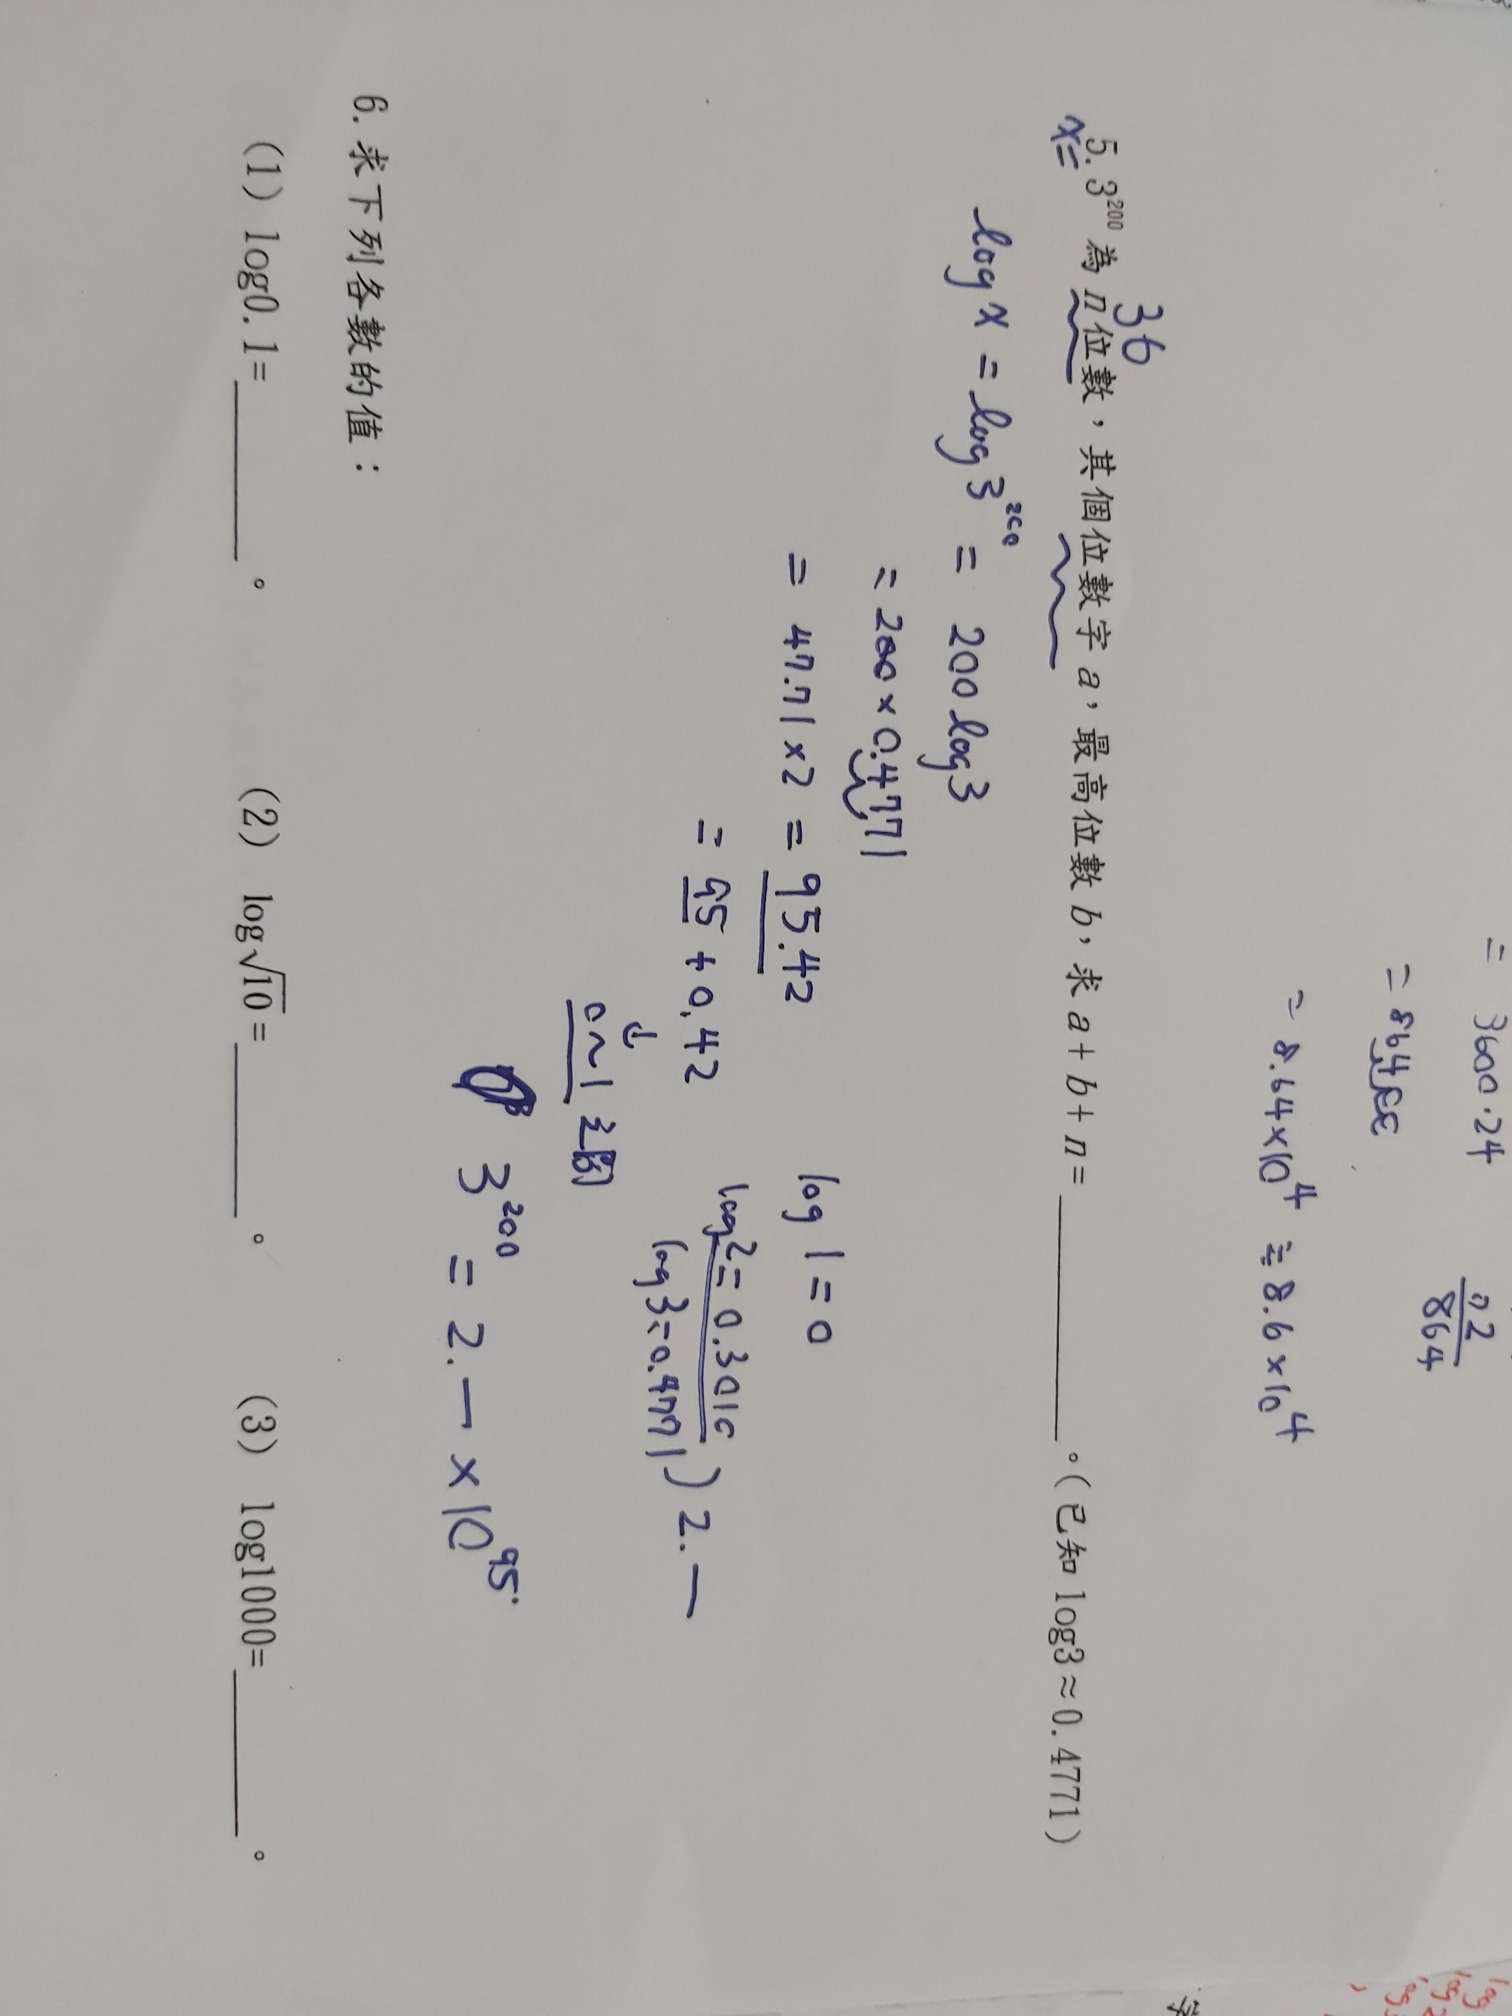 = 3600·24
02
864
= 86400
= 8.64×10⁴ ≒ 8.6×10⁴
36
5. 3²⁰⁰ 為 n 位數，其個位數字 a，最高位數 b，求 a+b+n=________。(已知 log3≈0.4771)
x=
log x = log 3²⁰⁰ = 200 log 3
= 200×0.4771
= 47.71×2 = 95.42
log 1 = 0
= 95 + 0.42
log2=0.3010
log3=0.4771) 2.—
↓
0~1之間
3²⁰⁰ = 2.— ×10⁹⁵.
6. 求下列各數的值：
(1) log0.1=________。 (2) log√10=________。 (3) log1000=________。